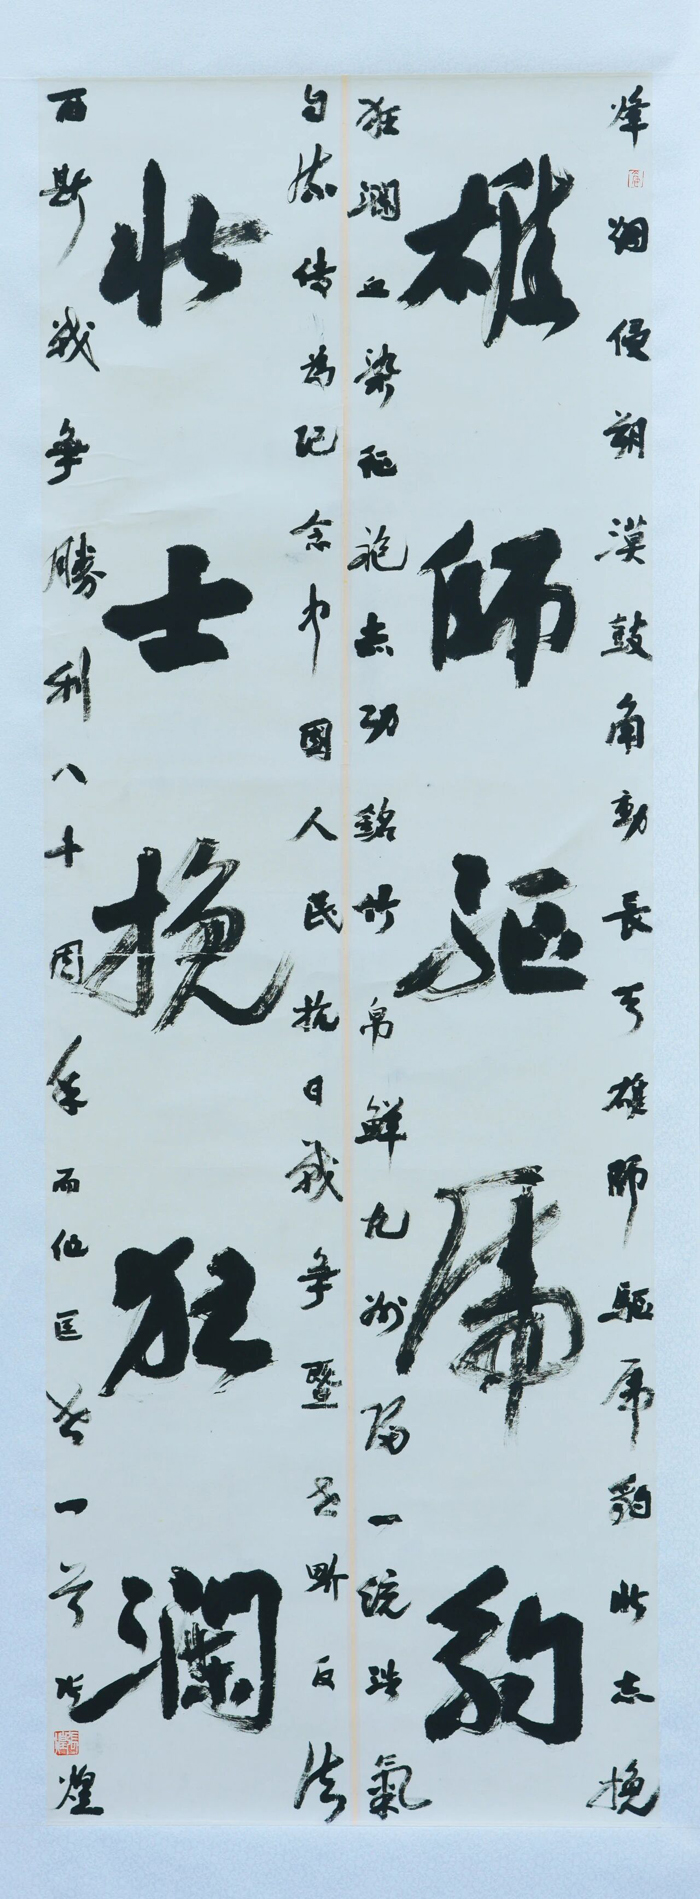 烽烟侵朔漠鼓角動長天雄師驅虎豹壯志挽
雄師驅虎豹
狂瀾血染征袍赤功銘竹帛鮮九州歸一統浩氣
自流傳為記念中國人民抗日戰爭暨世界反法
壯士挽狂瀾
西斯戰爭勝利八十周年而作匡一煌